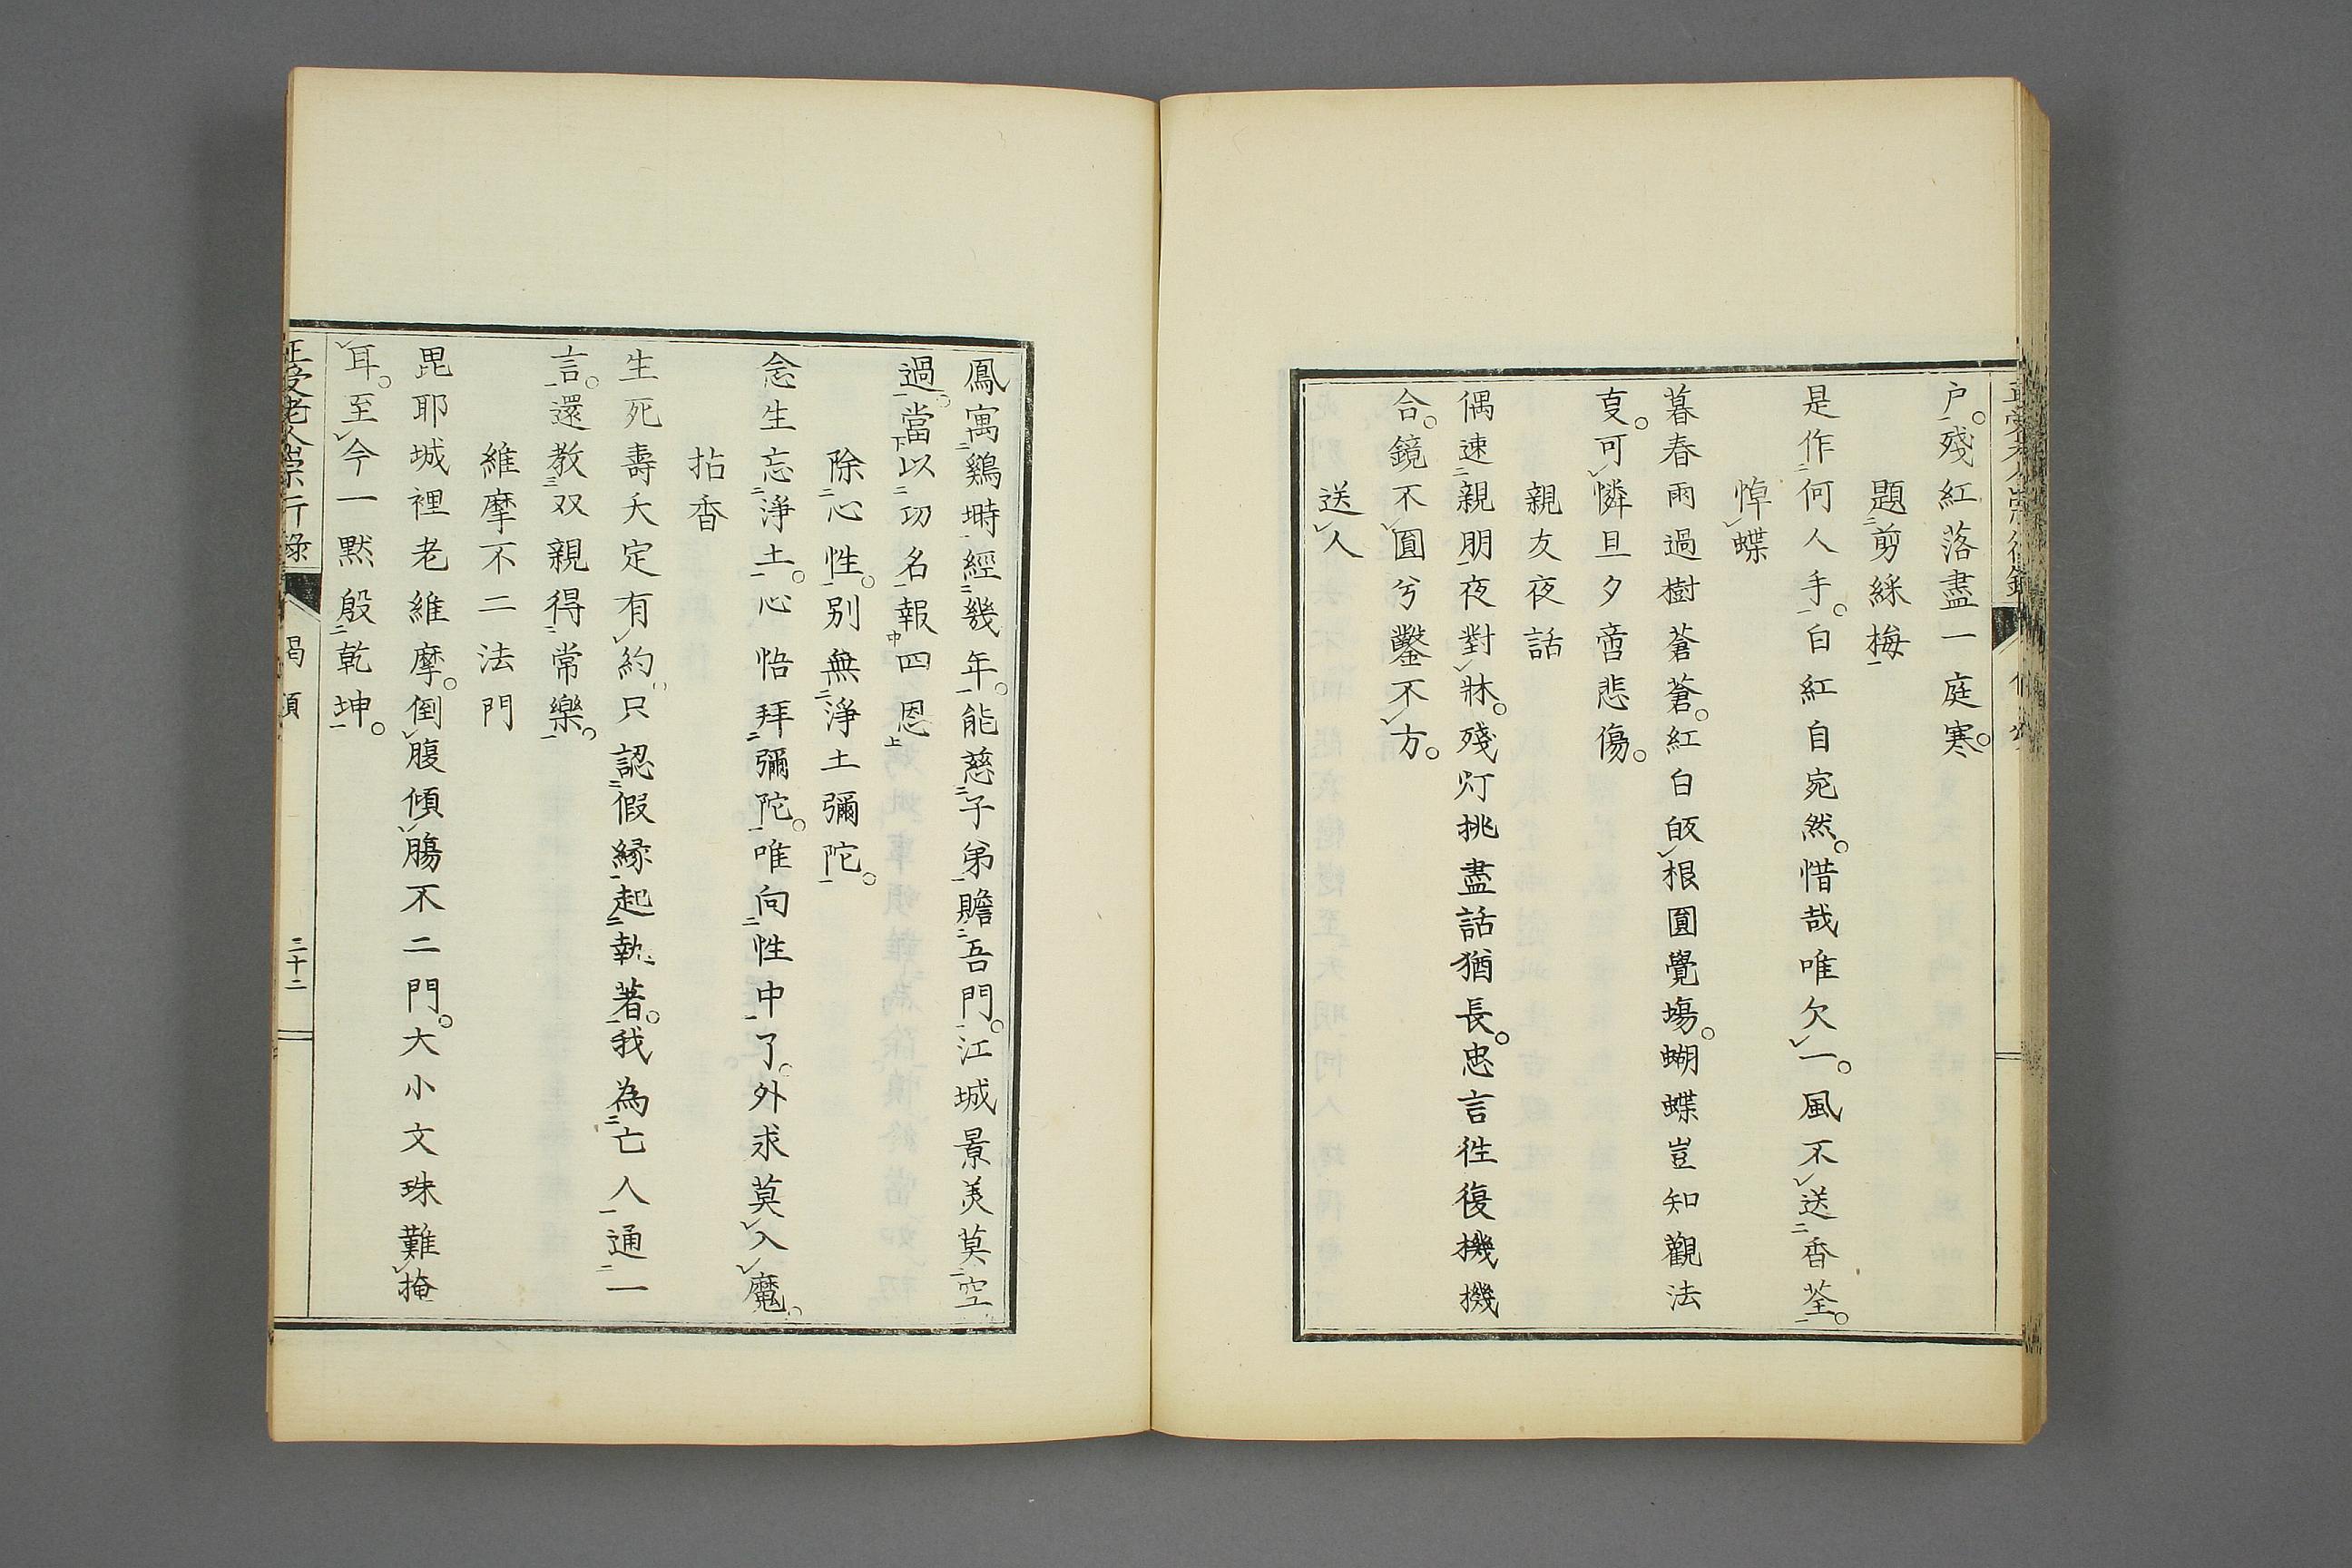 户。殘紅落盡一庭寒。
題剪綵梅
是作何人手。白紅自宛然。惜哉唯欠一。風不送香荃。
悼蝶
暮春雨過樹蒼蒼。紅白皈根圓覺場。蝴蝶豈知觀法
夏。可憐旦夕啻悲傷。
親友夜話
偶速親朋夜對牀。殘灯挑盡話猶長。忠言徃復機機
合。鏡不圓兮鑿不方。
送人
鳳寓鷄塒經幾年。能慈子弟贍吾門。江城景羙莫空
過。當以功名報四恩
除心性。別無淨土彌陀。
念生忘淨土。心悟拜彌陀。唯向性中了。外求莫入魔。
拈香
生死壽夭定有約只認假縁起執著。我為亡人通一
言。還教双親得常樂。
維摩不二法門
毘耶城裡老維摩。倒腹傾膓不二門。大小文殊難掩
耳。至今一默殷乾坤。
正受老人崇行錄
偈頌
三十二